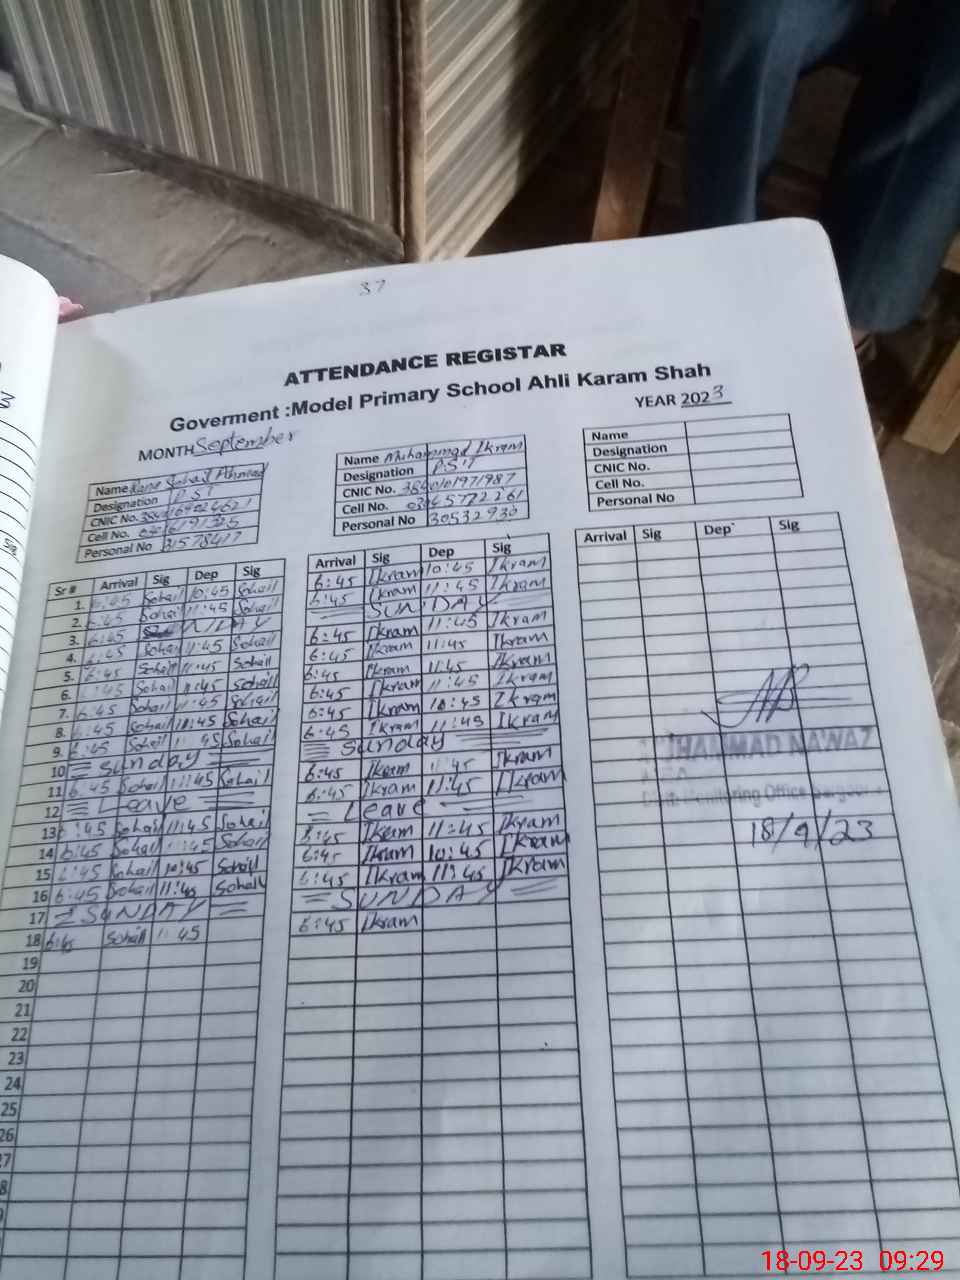 37
ATTENDANCE REGISTAR
Goverment :Model Primary School Ahli Karam Shah
MONTH September YEAR 2023
Name Sohail Ahmad
Designation P.ST
CNIC No.
Cell No.
Personal No 31578417
Name Muhammad Ikram
Designation P.S.T
CNIC No. 3840101971987
Cell No. 03457722261
Personal No 30532930
Name
Designation
CNIC No.
Cell No.
Personal No
Sr # Arrival Sig Dep Sig Arrival Sig Dep Sig Arrival Sig Dep Sig
1. 6:45 Sohail 10:45 Sohail 6:45 Ikram 10:45 Ikram
2. 6:45 Sohail 11:45 Sohail 6:45 Ikram 11:45 Ikram
3. SUNDAY
4. 6:45 Sohail 11:45 Sohail 6:45 Ikram 11:45 Ikram
5. 6:45 Sohail 11:45 Sohail 6:45 Ikram 11:45 Ikram
6. Sohail 11:45 Sohail 6:45 Ikram 11:45 Ikram
7. 6:45 Sohail 11:45 Sohail 6:45 Ikram 11:45 Ikram
8. 6:45 Sohail 10:45 Sohail 6:45 Ikram 10:45 Ikram
9. 6:45 Sohail 11:45 Sohail 6:45 Ikram 11:45 Ikram
10 Sunday Sunday
11 6:45 Sohail 11:45 Sohail 6:45 Ikram 11:45 Ikram
12 Leave 6:45 Ikram 11:45 Ikram
13 6:45 Sohail 11:45 Sohail Leave
14 6:45 Sohail 11:45 Sohail 6:45 Ikram 11:45 Ikram
15 6:45 Sohail 10:45 Sohail 6:45 Ikram 10:45 Ikram
16 6:45 Sohail 11:45 Sohail 6:45 Ikram 11:45 Ikram
17 SUNDAY SUNDAY
18 6:45 Sohail 11:45 6:45 Ikram
19
20
21
22
23
24
25
26
MUHAMMAD NAWAZ
Monitoring Office
18/9/23
18-09-23 09:29